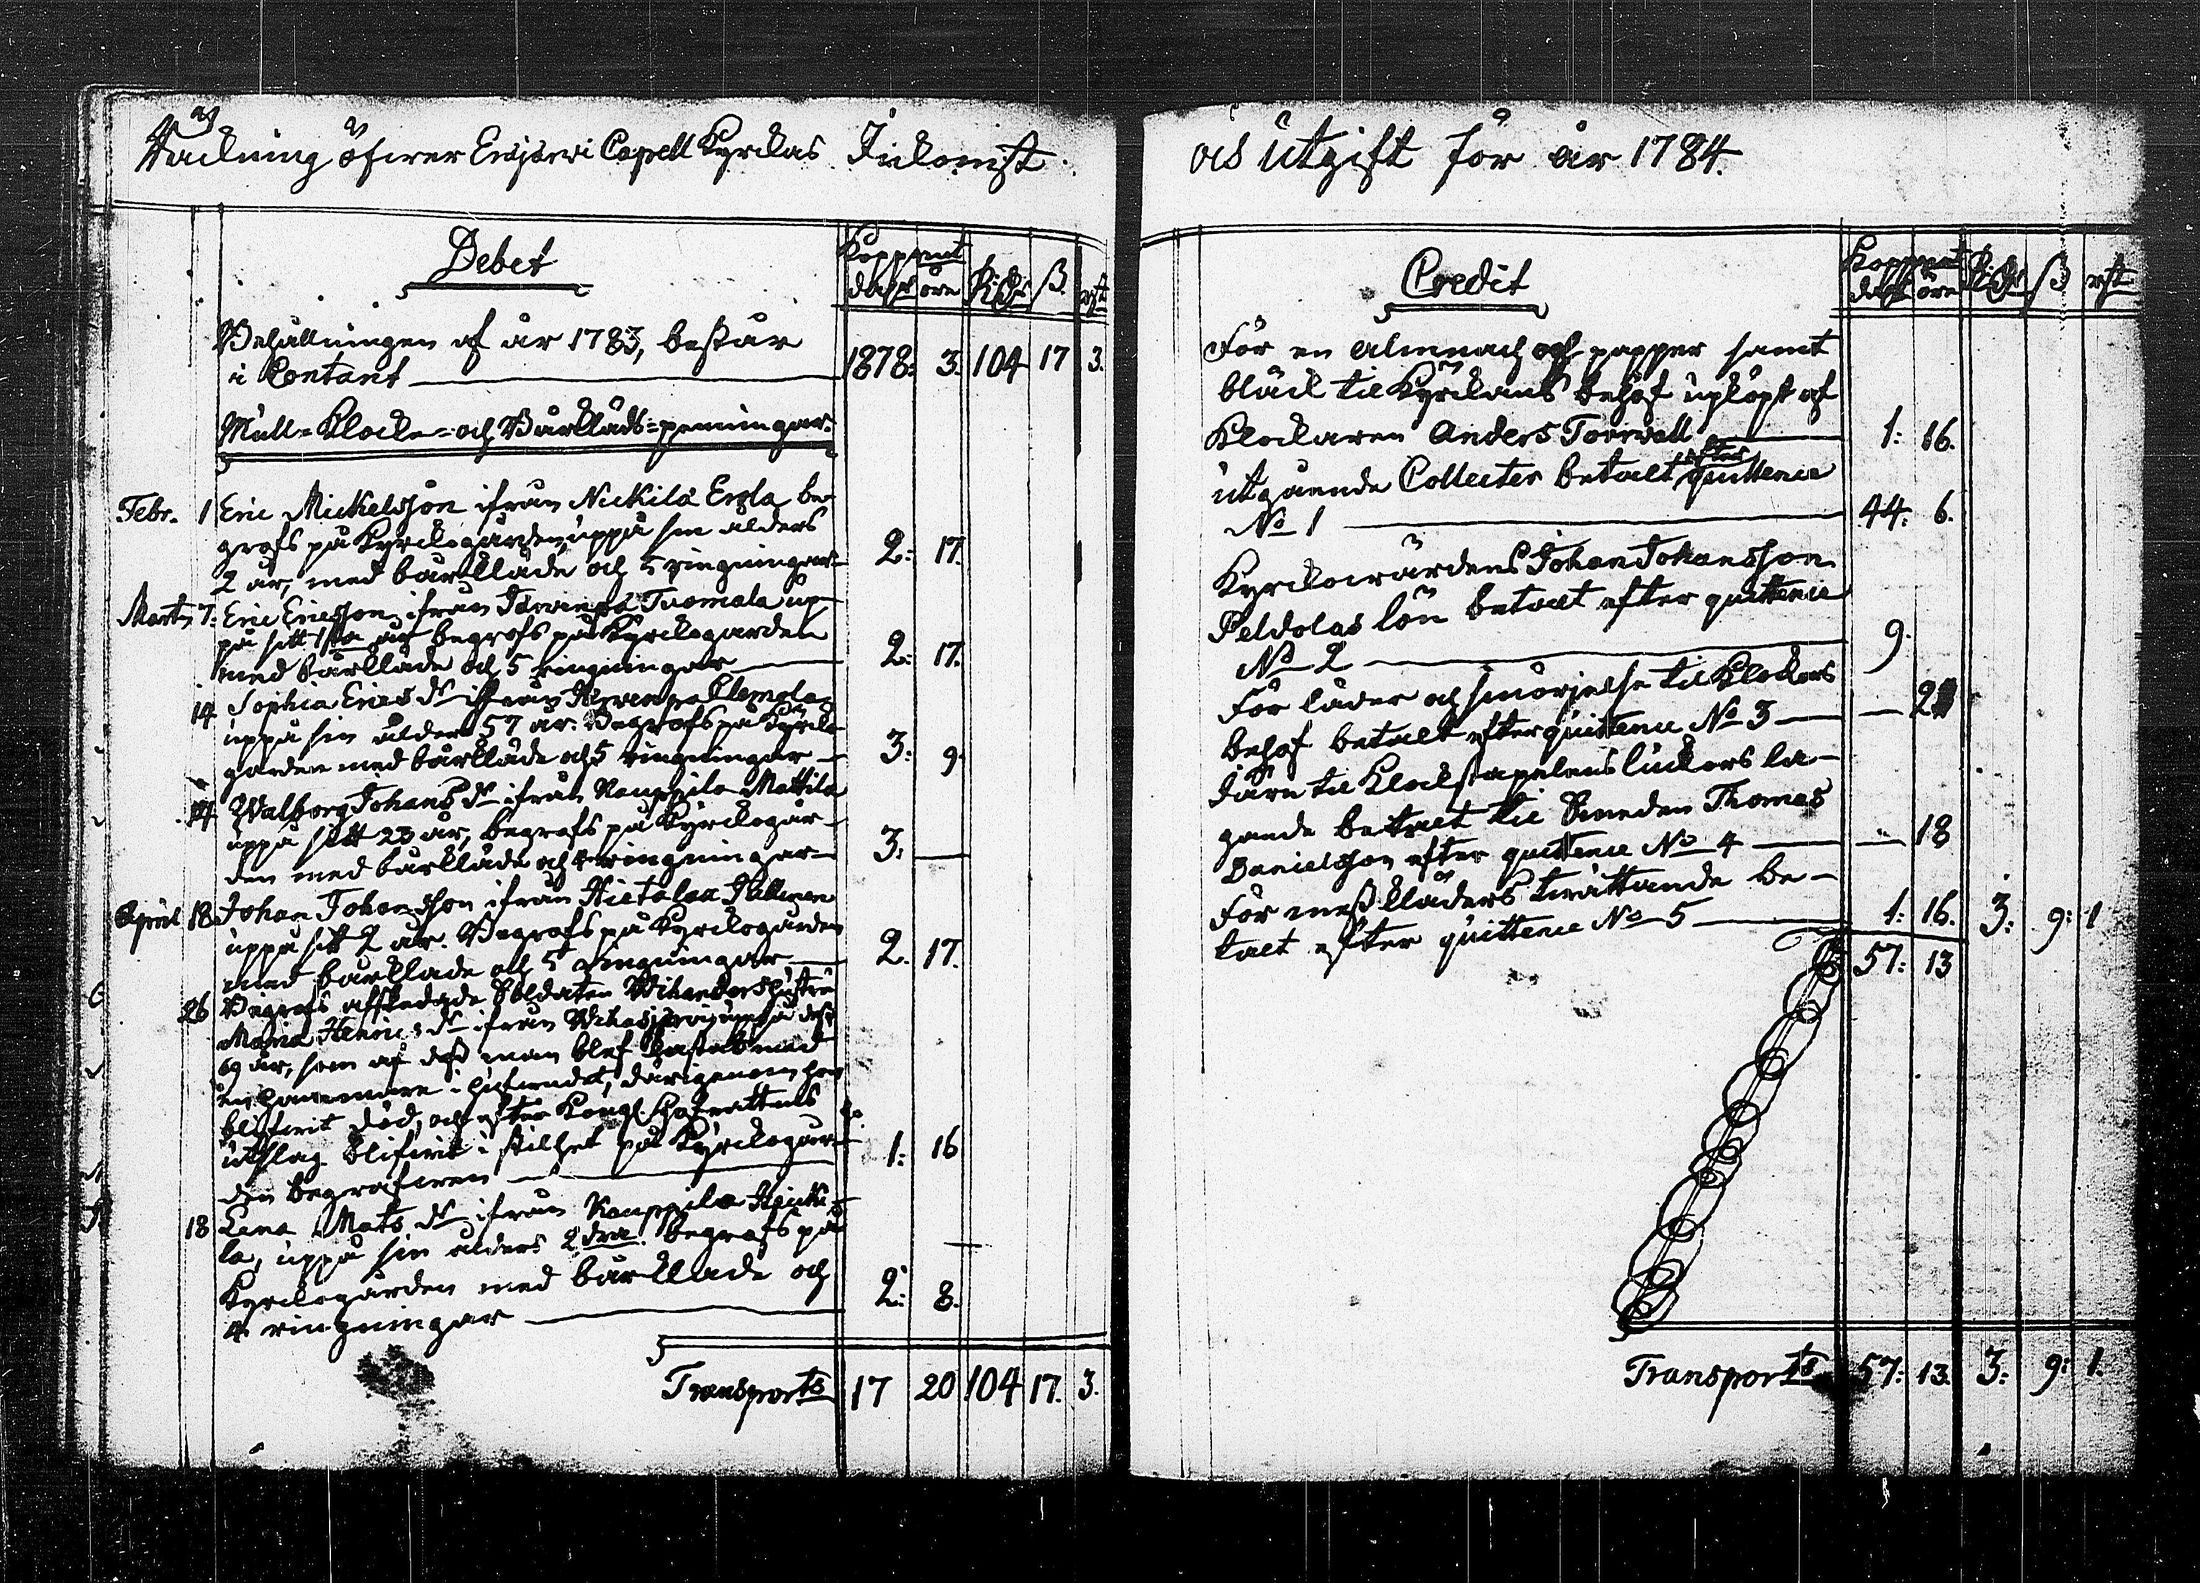 Räckning öfwer Eräjerwi Capell Kyrckas Inkomst
Debet
Koppmt
dahlr öre Rdr ß. rst
Behållningen af år 1783, består
i Contant 1878: 3. 104 17 3.
Mull- Klocke- och Bårkläds-penningar.
Febr. 1 Eric Michelsson ifrån Nickilä Erola be-
grofs på Kyrckogården, uppå sin ålders
2 år, med bårkläde och 5 ringningar 2: 17.
Mart. 7. Eric Ericsson ifrån Järwenpä Tuomala up-
på sitt 1sta år begrofs på Kyrckogården
med bårkläde och 5 ringningar 2: 17.
14 Sophia Erics dr ifrån Järwenpä Clemola
uppå sin ålders 57 år. Begrofs på Kyrcko-
gården med bårkläde och 5 ringningar 3: 9.
14 Walborg Johans dr ifrån Kauppila Mattila
uppå sitt 23 år, begrofs på Kyrckogår-
den med bårkläde och 4 ringningar 3: —
April 18 Johan Johansson ifrån Hietalax Hallinen
uppå sitt 2 år. Begrofs på Kyrckogården
med bårkläde och 5 ringningar 2. 17.
26 Begrofs afskedade Soldaten Wihanders hustru
Maria Henrics dr ifrån Wihasjerwi, uppå dess
69 år, som af dess man blef kastad med
en hammare i hufwudet, därigenom hon
blifwit död, och efter Kongl. Hofrättens
utslag blifwit i stillhet på Kyrckogår-
den begrafwen 1: 16
18 Lena Mats dr ifrån Kauppila Heicki-
la, uppå sin ålders 2 dra begrofs på
Kyrckogården med bårkläde och
4 ringningar 2: 8.
Transports 17 20 104 17. 3.
och utgift för år 1784.
Credit
Koppmt
dahlr öre Rdr ß rst
För en Almnach och papper samt
bläck til Kyrckans behof upköpt af
Klockaren Anders Torrwall 1: 16.
utgående Collecter betalt efter quittence
No 1 44: 6.
Kyrckowärdens Johan Johansson
Peldolas lön betalt efter quittence
No 2 9.
För läder och smörjelse til Klockors
behof betalt efter quittence No 3 — 21
Järn til Klockstapelens luckors la-
gande betalt til Smeden Thomas
Danielsson efter quittence No 4 — 18
För messkläders twättande be-
talt efter quittence No 5 1: 16. 3: 9: 1
57: 13
Transports 57: 13. 3: 9: 1.